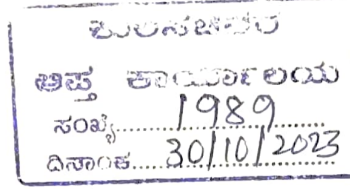 ಕುಲಸಚಿವರ
ಆಪ್ತ ಕಾರ್ಯಾಲಯ
ಸಂಖ್ಯೆ.......1989.......
ದಿನಾಂಕ.....30/10/2023